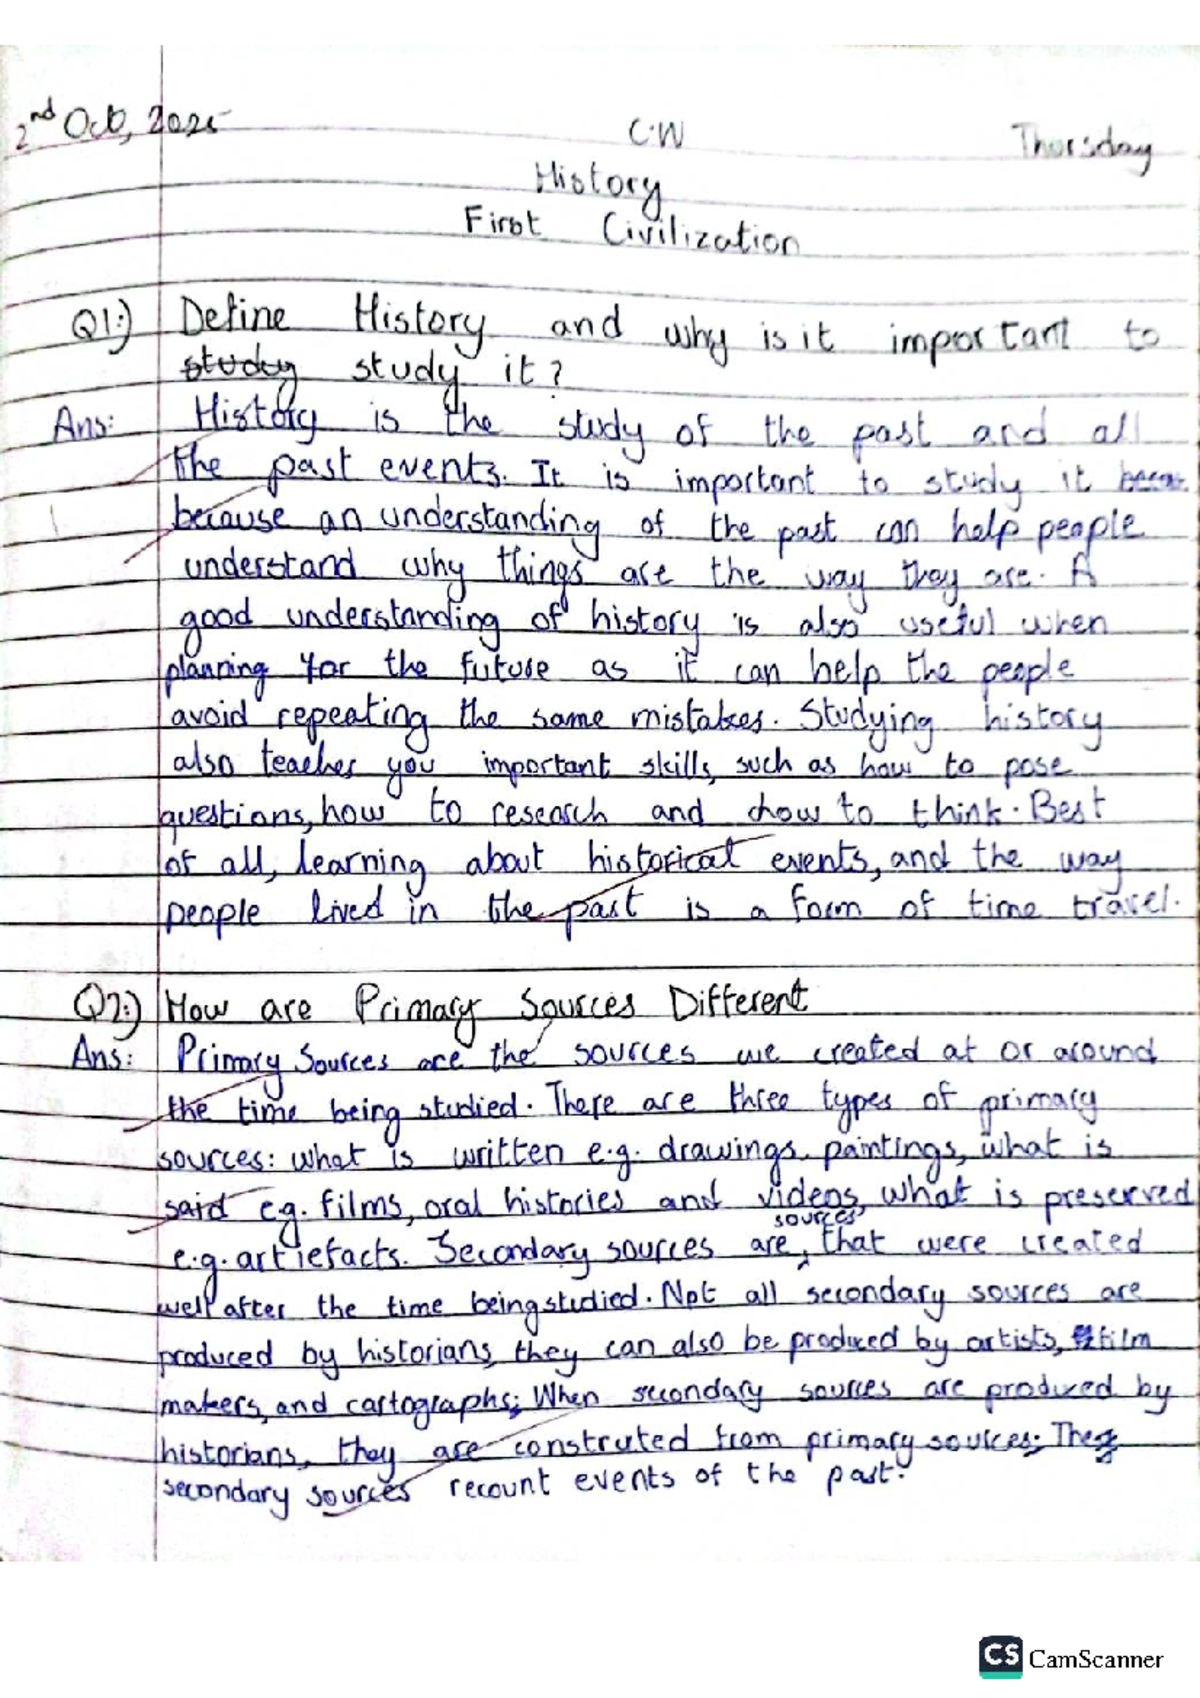 2nd Oct, 2025 C.W Thursday
History
First Civilization
Q1:) Define History and why is it important to
study study it?
Ans: History is the study of the past and all
the past events. It is important to study it becau.
because an understanding of the past can help people
understand why things are the way they are. A
good understanding of history is also useful when
planning for the future as it can help the people
avoid repeating the same mistakes. Studying history
also teaches you important skills, such as how to pose
questions, how to research and how to think. Best
of all, learning about historical events, and the way
people lived in the past is a form of time travel.
Q2:) How are Primary Sources Different
Ans: Primary Sources are the sources we created at or around
the time being studied. There are three types of primary
sources: what is written e.g. drawings, paintings, what is
said e.g. films, oral histories and videos, what is preserved
e.g. artiefacts. Secondary sources are, sources that were created
well after the time being studied. Not all secondary sources are
produced by historians, they can also be produced by artists, film
makers, and cartographs; When secondary sources are produced by
historians, they are constructed from primary sources. These
secondary sources recount events of the past.
CS CamScanner